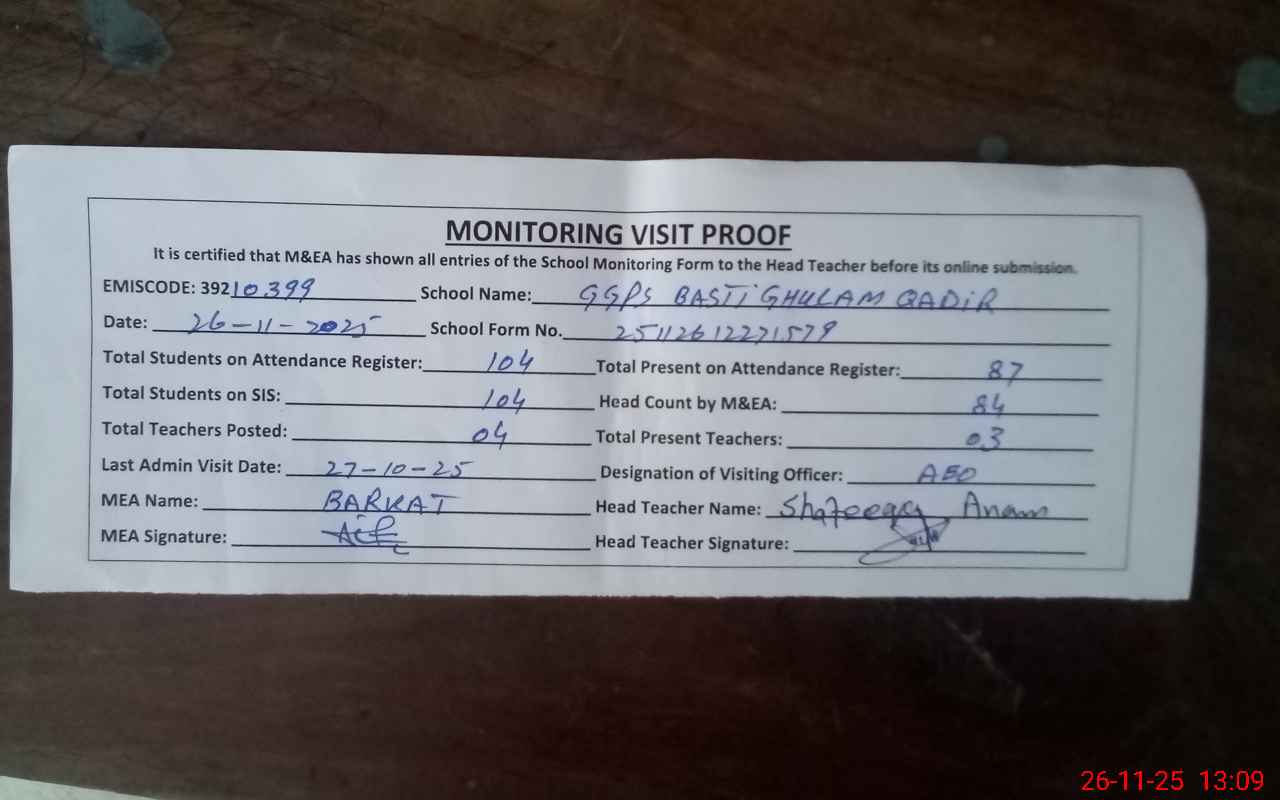 MONITORING VISIT PROOF
It is certified that M&EA has shown all entries of the School Monitoring Form to the Head Teacher before its online submission.
EMISCODE: 39210399 School Name: GGPS BASTI GHULAM QADIR
Date: 26-11-2025 School Form No. 25112612271579
Total Students on Attendance Register: 104 Total Present on Attendance Register: 87
Total Students on SIS: 104 Head Count by M&EA: 84
Total Teachers Posted: 04 Total Present Teachers: 03
Last Admin Visit Date: 27-10-25 Designation of Visiting Officer: AEO
MEA Name: BARKAT Head Teacher Name: Shafeeqa Anam
MEA Signature: Head Teacher Signature:
26-11-25 13:09